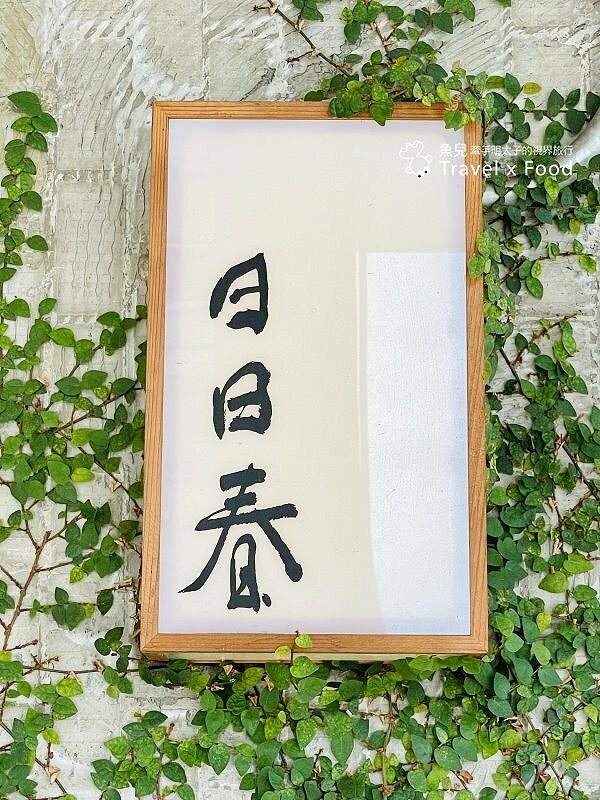 魚兒 牽手明太子的視界旅行
Travel x Food
日日春